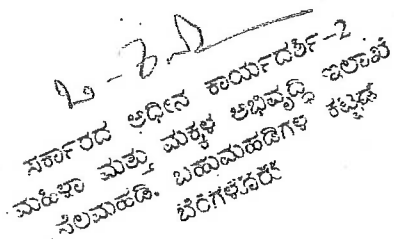 ಸರ್ಕಾರದ ಅಧೀನ ಕಾರ್ಯದರ್ಶಿ-2
ಮಹಿಳಾ ಮತ್ತು ಮಕ್ಕಳ ಅಭಿವೃದ್ಧಿ ಇಲಾಖೆ
ನೆಲಮಹಡಿ. ಬಹುಮಹಡಿಗಳ ಕಟ್ಟಡ
ಬೆಂಗಳೂರು